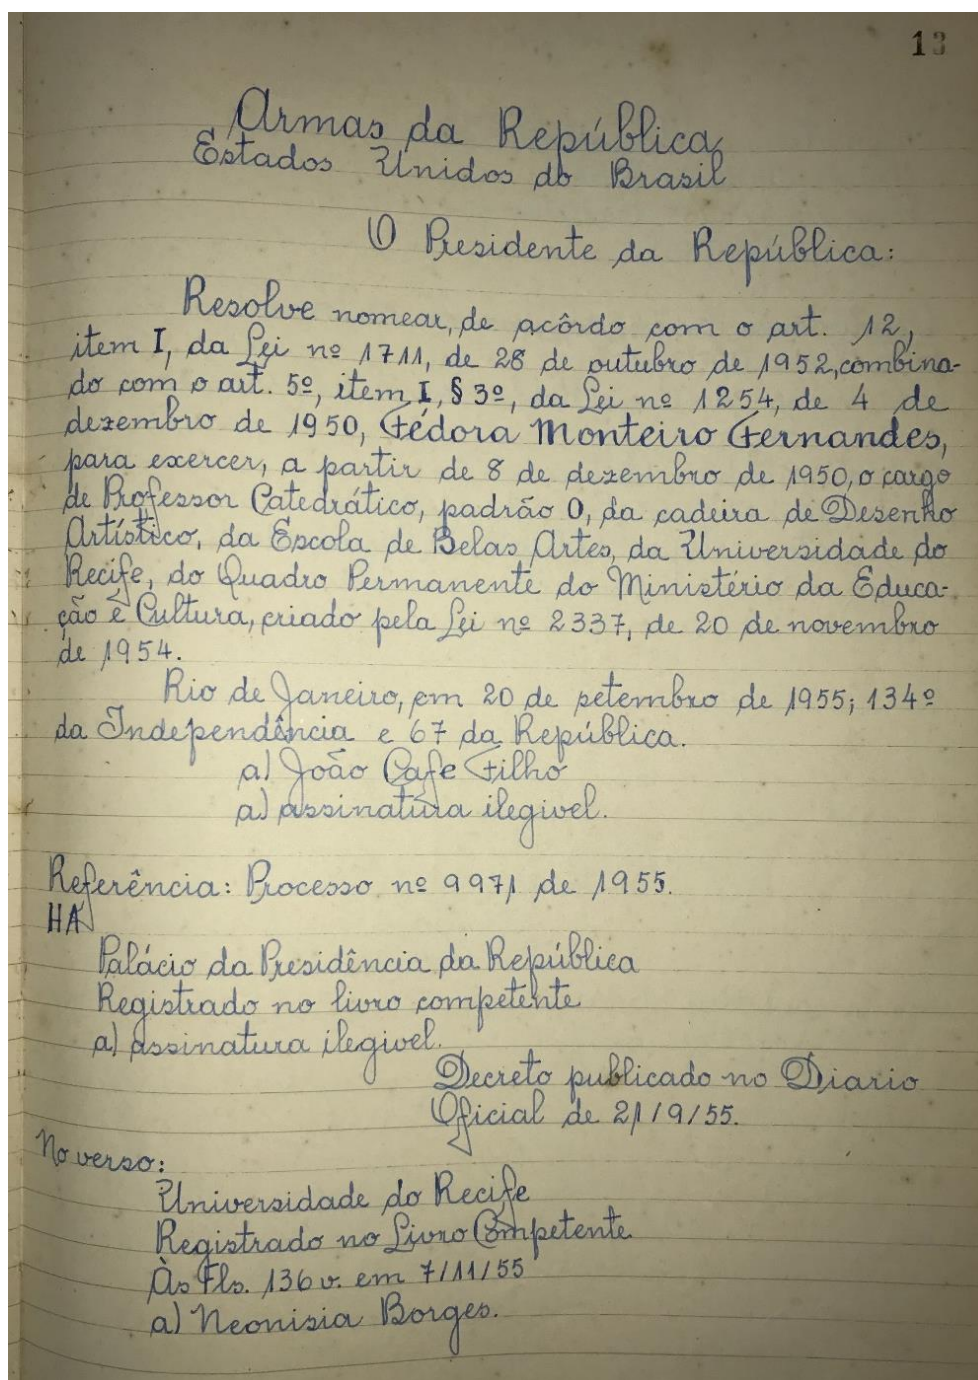 13
Armas da República
Estados Unidos do Brasil
O Presidente da República:
Resolve nomear, de acôrdo com o art. 12,
item I, da Lei nº 1711, de 28 de outubro de 1952, combina-
do com o art. 5º, item I, § 3º, da Lei nº 1254, de 4 de
dezembro de 1950, Fédora Monteiro Fernandes,
para exercer, a partir de 8 de dezembro de 1950, o cargo
de Professor Catedrático, padrão O, da cadeira de Desenho
Artístico, da Escola de Belas Artes, da Universidade do
Recife, do Quadro Permanente do Ministério da Educa-
ção e Cultura, criado pela Lei nº 2337, de 20 de novembro
de 1954.
Rio de Janeiro, em 20 de setembro de 1955; 134º
da Independência e 67 da República.
a) João Cafe Filho
a) assinatura ilegivel.
Referência: Processo nº 9971 de 1955.
HA
Palácio da Presidência da República
Registrado no livro competente
a) assinatura ilegivel.
Decreto publicado no Diario
Oficial de 21/9/55.
No verso:
Universidade do Recife
Registrado no Livro Competente
Às Fls. 136 v. em 7/11/55
a) Neonisia Borges.